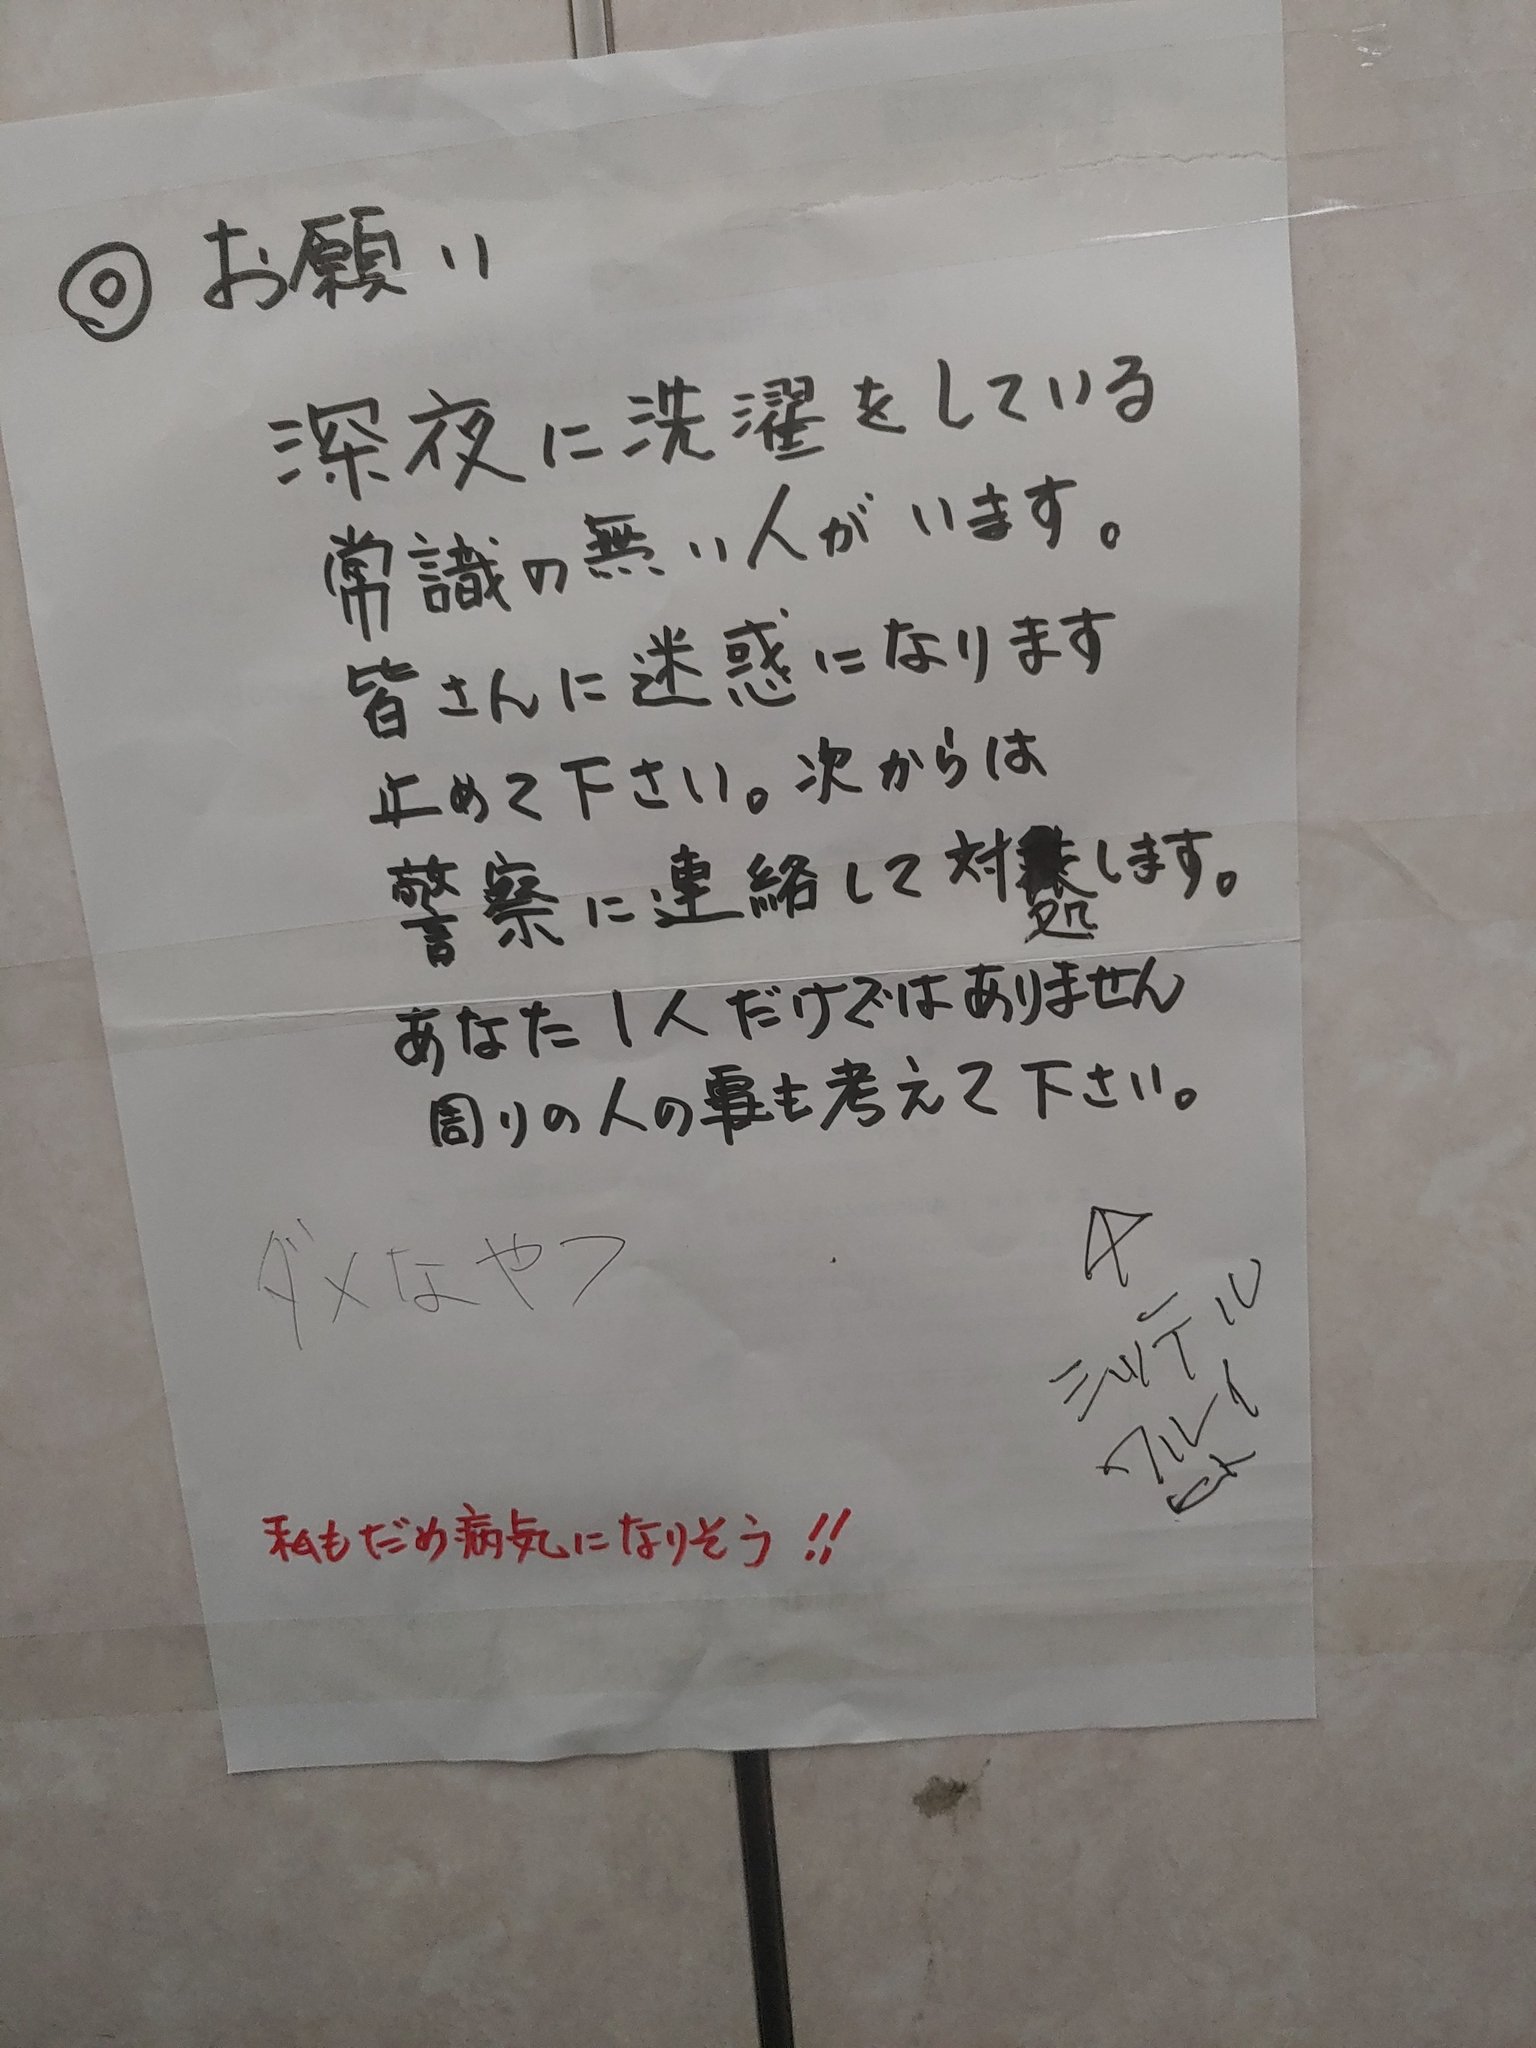 ◎お願い
深夜に洗濯をしている
常識の無い人がいます。
皆さんに迷惑になります
止めて下さい。次からは
警察に連絡して対処します。
あなた1人だけではありません
周りの人の事も考えて下さい。
ダメなやつ
ミツテル
ワルイ
私もだめ病気になりそう!!